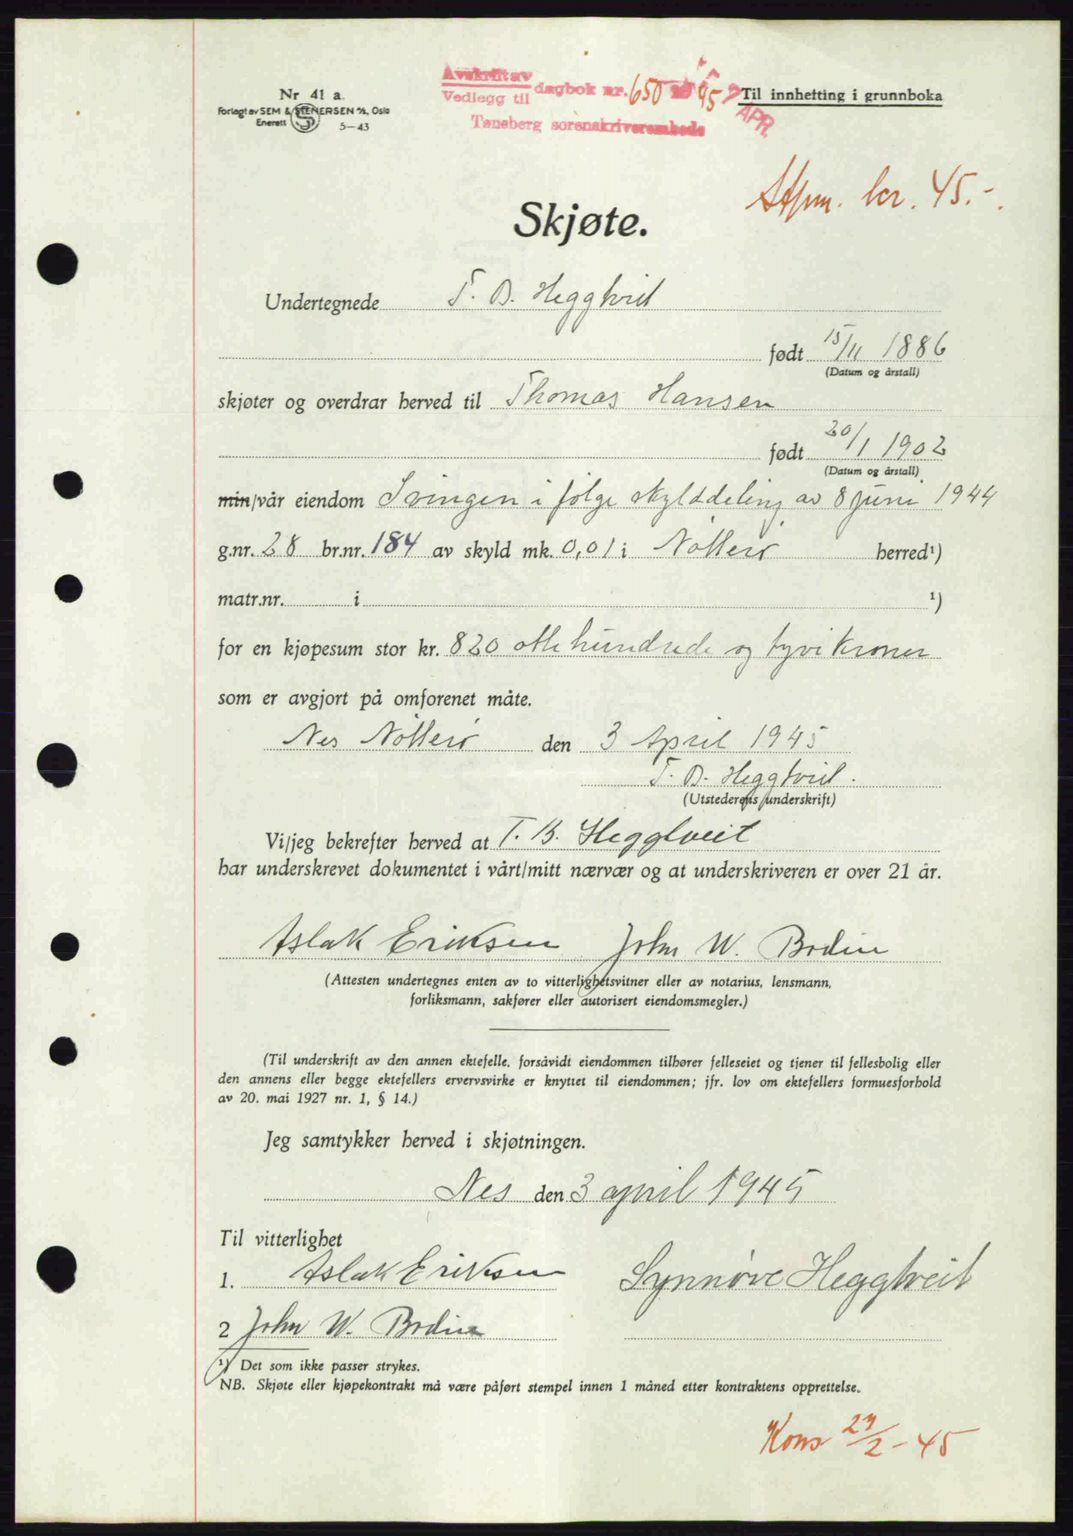 Nr 41 a.
Forlagt av SEM & STENERSEN A/S, Oslo
Enerett 5-43
Avskrift av
Vedlegg til dagbok nr. 650 1945
Tønsberg sorenskriverembede
7 APR.
Til innhefting i grunnboka
Stpm. kr. 45.-.
Skjøte.
Undertegnede T. B. Heggtveit
født 15/11 1886
(Datum og årstall)
skjøter og overdrar herved til Thomas Hansen
født 20/1 1902
(Datum og årstall)
min/vår eiendom Svingen i følge skylddeling av 8 juni 1944
g.nr. 28 br.nr. 184 av skyld mk. 0,01 i Nötterö herred¹)
matr.nr. i ¹)
for en kjøpesum stor kr. 820 otte hundrede og tyvi kroner
som er avgjort på omforenet måte.
Nes Nötterö den 3 April 1945
T. B. Heggtveit.
(Utstederens underskrift)
Vi/jeg bekrefter herved at T. B. Heggtveit
har underskrevet dokumentet i vårt/mitt nærvær og at underskriveren er over 21 år.
Aslak Eriksen John W. Bodin
(Attesten undertegnes enten av to vitterlighetsvitner eller av notarius, lensmann,
forliksmann, sakfører eller autorisert eiendomsmegler.)
(Til underskrift av den annen ektefelle, forsåvidt eiendommen tilhører felleseiet og tjener til fellesbolig eller
den annens eller begge ektefellers ervervsvirke er knyttet til eiendommen; jfr. lov om ektefellers formuesforhold
av 20. mai 1927 nr. 1, § 14.)
Jeg samtykker herved i skjøtningen.
Nes den 3 april 1945
Til vitterlighet
1. Aslak Eriksen Synnøve Heggtveit
2 John W. Bodin
¹) Det som ikke passer strykes.
NB. Skjøte eller kjøpekontrakt må være påført stempel innen 1 måned etter kontraktens opprettelse.
Kons 27/2-45